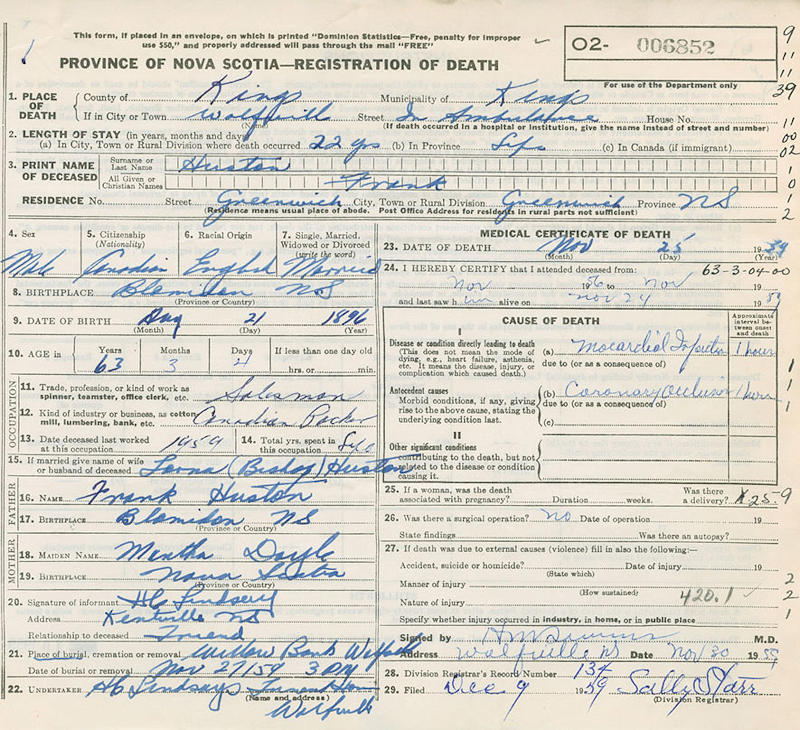 This form, if placed in an envelope, on which is printed "Dominion Statistics—Free, penalty for improper
use $50," and properly addressed will pass through the mail "FREE"
O2- 006852
PROVINCE OF NOVA SCOTIA—REGISTRATION OF DEATH
For use of the Department only
9
11
11
39
11
00
02
1
0
1
2
1. PLACE OF DEATH
County of Kings Municipality of Kings
If in City or Town Wolfville Street In Ambulance House No.
(Name) (If death occurred in a hospital or institution, give the name instead of street and number)
2. LENGTH OF STAY (in years, months and days)
(a) In City, Town or Rural Division where death occurred 22 yrs (b) In Province Life (c) In Canada (if immigrant)
3. PRINT NAME OF DECEASED
Surname or Last Name Huston
All Given or Christian Names Frank
RESIDENCE No. Street Greenwich City, Town or Rural Division Greenwich Province NS
(Residence means usual place of abode. Post Office Address for residents in rural parts not sufficient)
4. Sex Male
5. Citizenship (Nationality) Canadian
6. Racial Origin English
7. Single, Married, Widowed or Divorced (write the word) Married
8. BIRTHPLACE Blomidon NS
(Province or Country)
9. DATE OF BIRTH 21 1896
(Month) (Day) (Year)
10. AGE in Years 63 Months 3 Days 4 If less than one day old
hrs. or min.
OCCUPATION
11. Trade, profession, or kind of work as spinner, teamster, office clerk, etc. Salesman
12. Kind of industry or business, as cotton mill, lumbering, bank, etc. Canadian Packer
13. Date deceased last worked at this occupation 1959
14. Total yrs. spent in this occupation Life
15. If married give name of wife or husband of deceased Lorna (Bishop) Huston
FATHER
16. NAME Frank Huston
17. BIRTHPLACE Blomidon NS
(Province or Country)
MOTHER
18. MAIDEN NAME Doyle
19. BIRTHPLACE Nova Scotia
(Province or Country)
20. Signature of informant HC Lindsay
Address Kentville NS
Relationship to deceased Friend
21. Place of burial, cremation or removal Willow Bank Wolfville
Date of burial or removal Nov 27/59 3 PM
22. UNDERTAKER HC Lindsays Funeral Home
(Name and address)
Wolfville
MEDICAL CERTIFICATE OF DEATH
23. DATE OF DEATH Nov 25 1959
(Month) (Day) (Year)
24. I HEREBY CERTIFY that I attended deceased from: 63-3-04-00
Nov 1956 to Nov 19
and last saw him alive on Nov 24 1959
CAUSE OF DEATH
Approximate interval between onset and death
I
Disease or condition directly leading to death
(This does not mean the mode of dying, e.g., heart failure, asthenia, etc. It means the disease, injury, or complication which caused death.)
(a) Mocardial Infarction 1 hour
due to (or as a consequence of)
Antecedent causes
Morbid conditions, if any, giving rise to the above cause, stating the underlying condition last.
(b) Coronary Occlusion 1 hour
due to (or as a consequence of)
(c)
II
Other significant conditions
contributing to the death, but not related to the disease or condition causing it.
1
1
1
25. If a woman, was the death associated with pregnancy? Duration weeks. Was there a delivery? 25.9
26. Was there a surgical operation? No Date of operation 19
State findings Was there an autopsy?
27. If death was due to external causes (violence) fill in also the following:—
Accident, suicide or homicide? Date of injury 19
(State which)
Manner of injury 2
(How sustained)
Nature of injury 420.1 2
Specify whether injury occurred in industry, in home, or in public place 1
Signed by M.D.
Address Wolfville NS Date Nov 30 1959
28. Division Registrar's Record Number 134
29. Filed Dec 9 1959 Sally Starr
(Division Registrar)